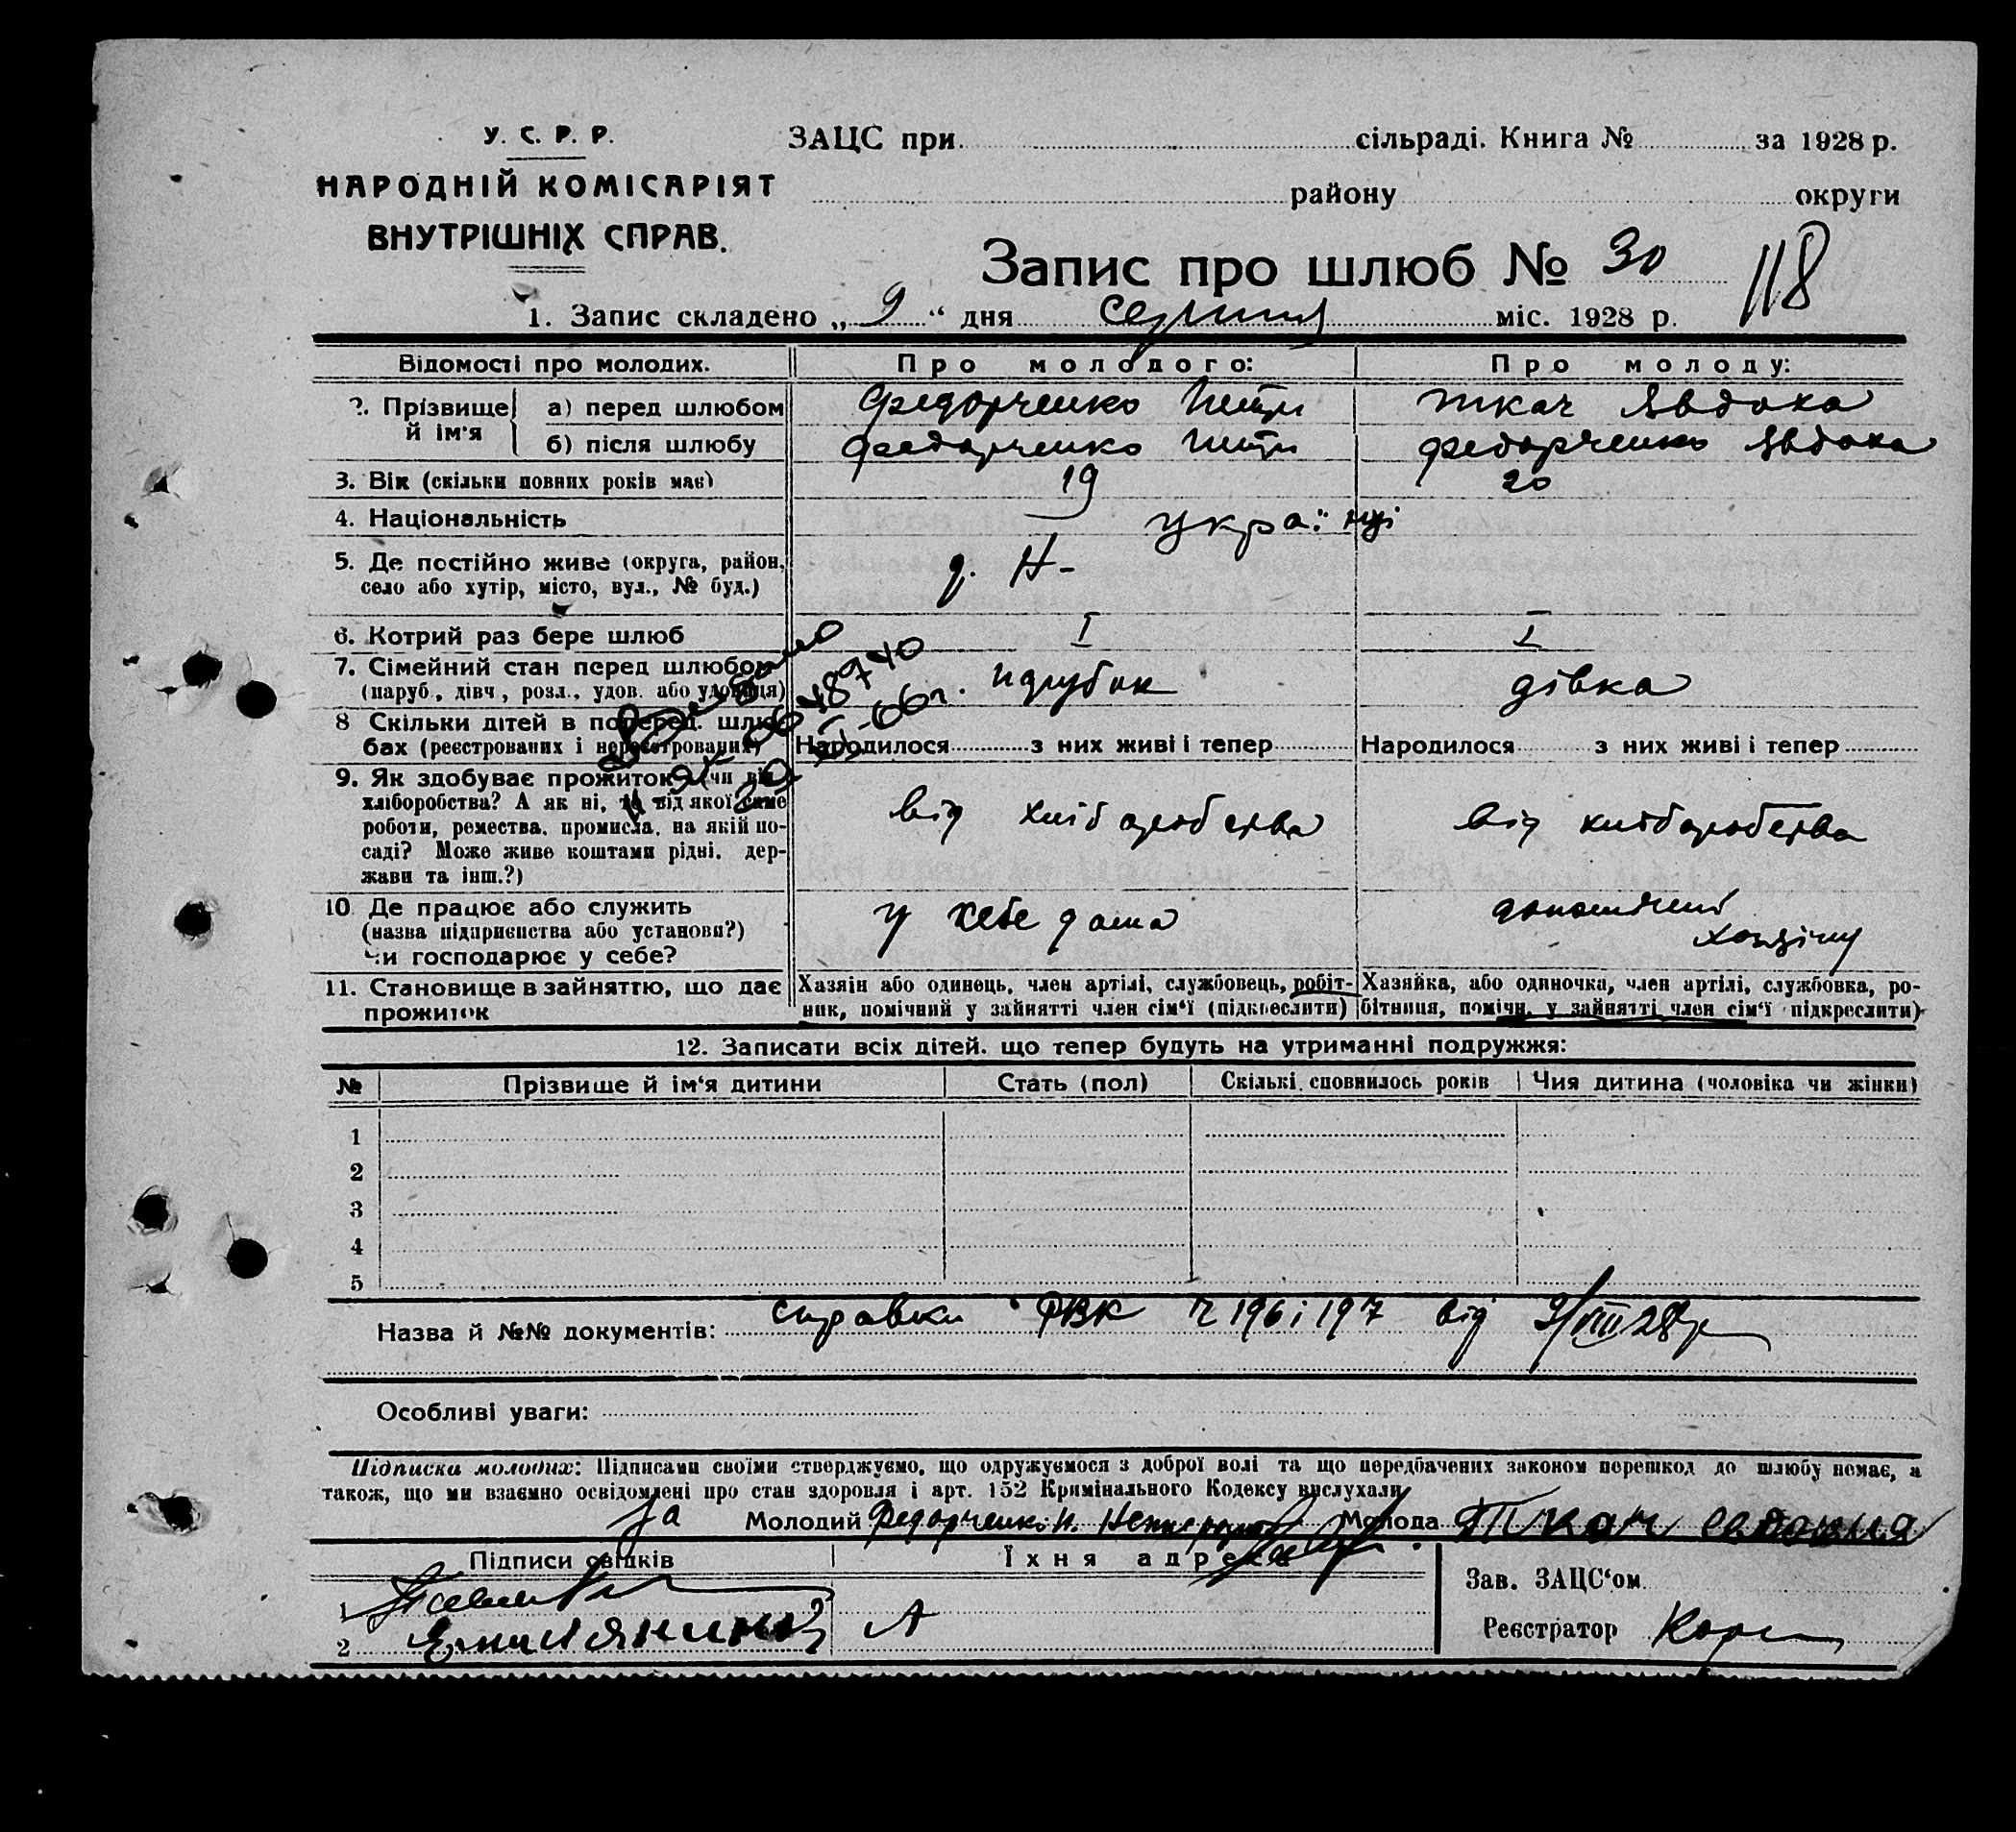 У. С. Р. Р.
НАРОДНІЙ КОМІСАРІЯТ
ВНУТРІШНІХ СПРАВ.
ЗАЦС при сільраді. Книга № за 1928 р.
району округи
Запис про шлюб № 30
118
1. Запис складено „ 9 “ дня серпня міс. 1928 р.
Відомості про молодих. Про молодого: Про молоду:
2. Прізвище й ім'я а) перед шлюбом Федорченко Петро Ткач Явдоха
б) після шлюбу Федорченко Петро Федорченко Явдоха
3. Вік (скільки повних років має) 19 20
4. Національність українці
5. Де постійно живе (округа, район, с. Н-
село або хутір, місто, вул., № буд.)
6. Котрий раз бере шлюб I I
7. Сімейний стан перед шлюбом парубок дівка
(паруб., дівч., розл., удов. або удовиця)
8 Скільки дітей в поперед. шлю-
бах (реєстрованих і нереєстрованих) Народилося з них живі і тепер Народилося з них живі і тепер
9. Як здобуває прожиток (чи від
хліборобства? А як ні, то від якої саме від хліборобства від хліборобства
роботи, ремества, промисла, на якій по-
саді? Може живе коштами рідні, дер-
жави та інш.?)
10 Де працює або служить у себе дома
(назва підприємства або установи?)
Чи господарює у себе?
11. Становище в зайняттю, що дає Хазяїн або одинець, член артілі, службовець, робіт- Хазяйка, або одиночка, член артілі, службовка, ро-
прожиток ник, помічний у зайнятті член сім'ї (підкреслити) бітниця, помічн. у зайнятті член сім'ї підкреслити)
12. Записати всіх дітей, що тепер будуть на утриманні подружжя:
№ Прізвище й ім'я дитини Стать (пол) Скількі сповнилось років Чия дитина (чоловіка чи жінки)
1
2
3
4
5
Назва й №№ документів: справки РВК ч 196 і 197 від 9/VIII 28 р
Особливі уваги:
Підписка молодих: Підписами своїми стверджуємо, що одружуємося з доброї волі та що передбачених законом перешкод до шлюбу немає, а
також, що ми взаємно освідомлені про стан здоровля і арт. 152 Кримінального Кодексу вислухали
Молодий Федорченко Молода Ткач
Підписи свідків Їхня адреса
Зав. ЗАЦС'ом
1
Реєстратор
2